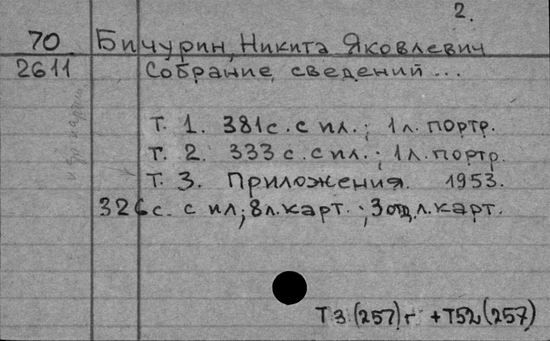 2.
70 Бичурин, Никита Яковлевич
2611 Собрание сведений...
Т. 1. 381с. с ил.; 1л. портр.
Т. 2. 333 с. с ил.; 1л. портр.
Т. 3. Приложения. 1953.
326с. с ил; 8л. карт.; 3 отд. л. карт.
Т 3 (257) г + Т52 (257)